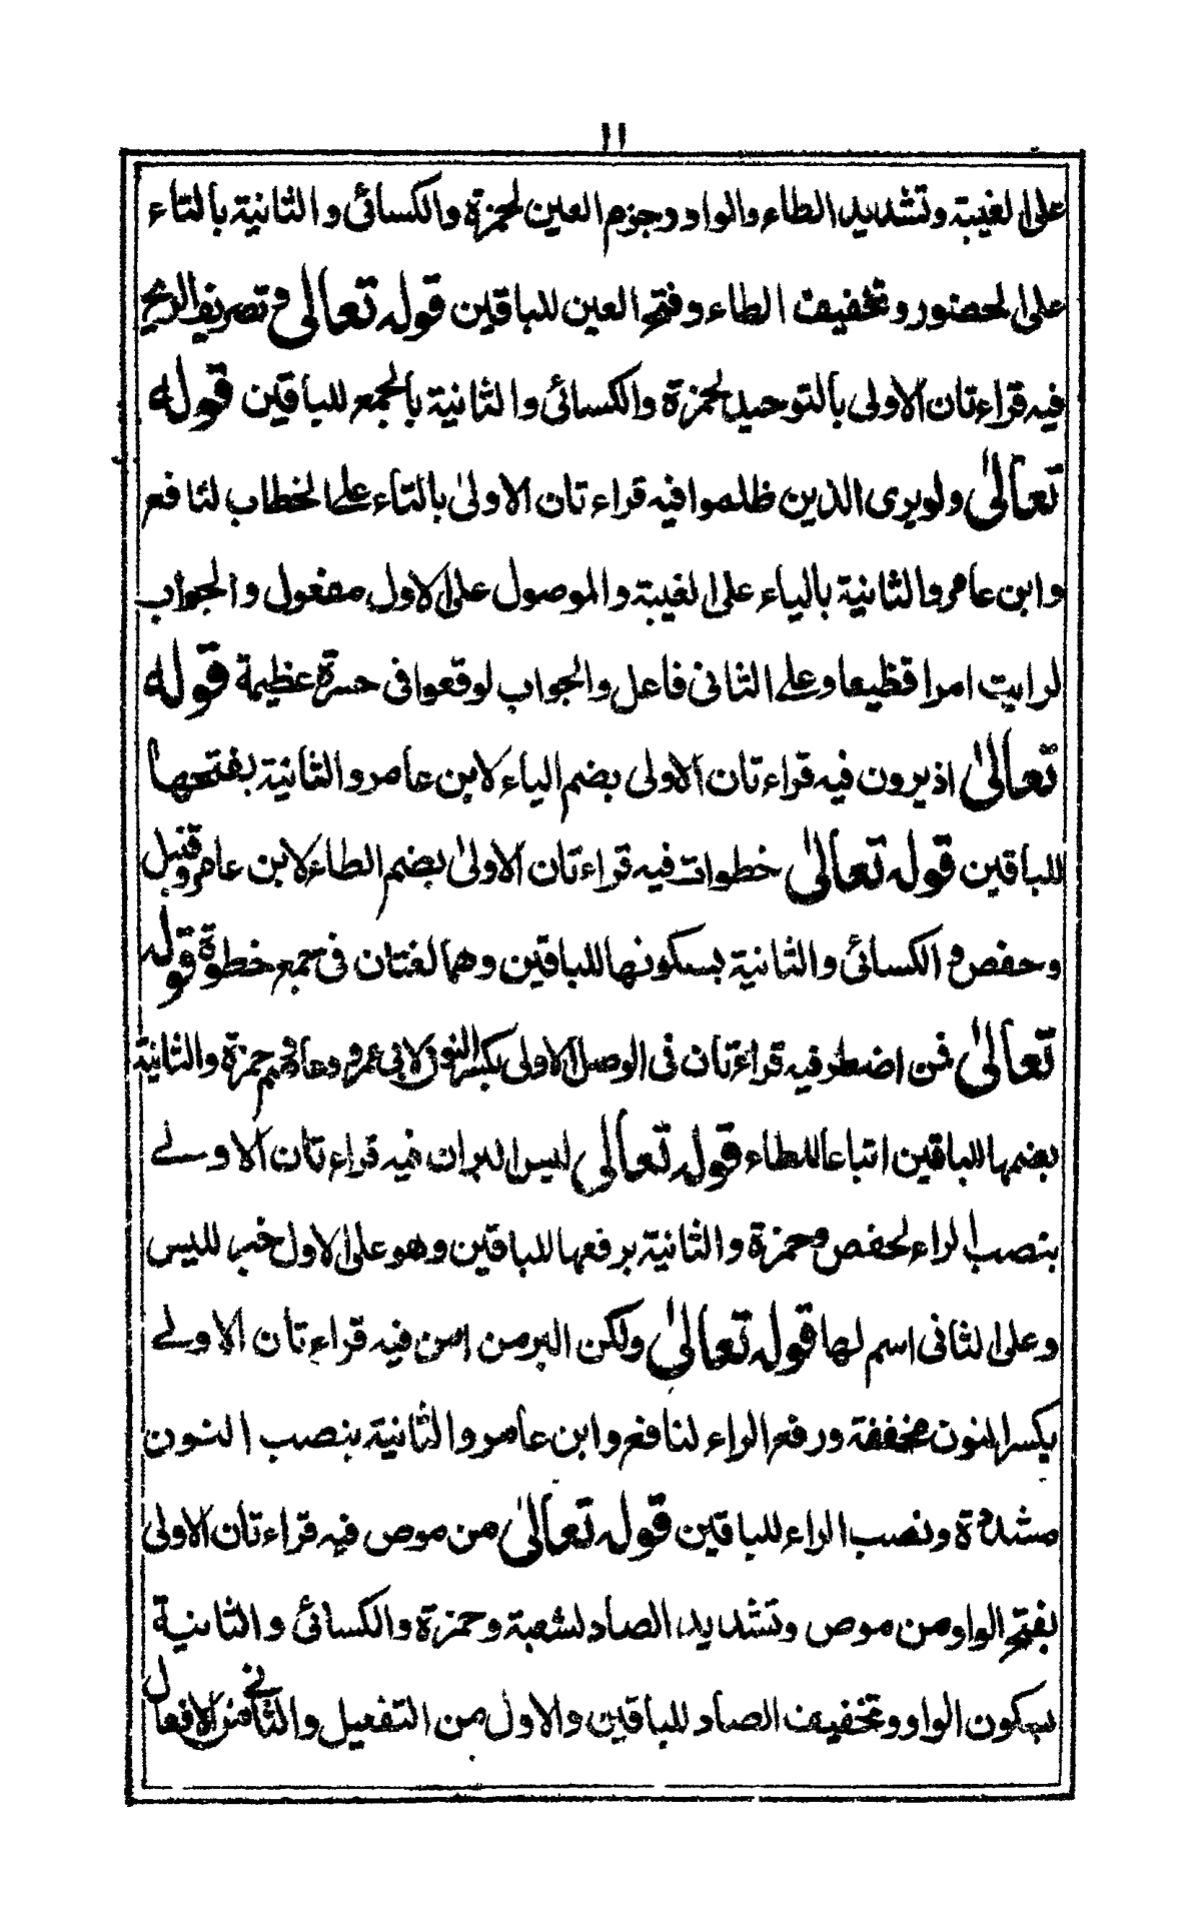 ١١
على الغيبة وتشديد الطاء والواو وجزم العين لحمزة والكسائى والثانية بالتاء
على الحضور وتخفيف الطاء وفتح العين للباقين قوله تعالى وتصريف الريح
فيه قراءتان الاولى بالتوحيد لحمزة والكسائى والثانية بالجمع للباقين قوله
تعالىٰ ولو يرى الذين ظلموا فيه قراءتان الاولىٰ بالتاء على الخطاب لنافع
وابن عامر والثانية بالياء على الغيبة والموصول على الاول مفعول والجواب
لرايت امرا قظيعا وعلى الثانى فاعل والجواب لوقعوا فى حسرة عظيمة قوله
تعالىٰ اذ يرون فيه قراءتان الاولى بضم الياء لابن عامر والثانية بفتحها
للباقين قوله تعالىٰ خطوات فيه قراءتان الاولىٰ بضم الطاء لابن عامر وقنبل
وحفص والكسائى والثانية بسكونها للباقين وهما لغتان فى جمع خطوة قوله
تعالىٰ فمن اضطر فيه قراءتان فى الوصل الاولى بكسر النون لابى عمرو وعاصم وحمزة والثانية
بضمها للباقين اتباعا للطاء قوله تعالى ليس البر ان فيه قراءتان الاولے
بنصب الراء لحفص وحمزة والثانية برفعها للباقين وهو على الاول خبر لليس
وعلى الثانى اسم لها قوله تعالىٰ ولكن البر من امن فيه قراءتان الاولے
بكسر النون مخففة ورفع الراء لنافع وابن عامر والثانية بنصب النون
مشددة ونصب الراء للباقين قوله تعالىٰ من موص فيه قراءتان الاولى
بفتح الواو من موص وتشديد الصاد لشعبة وحمزة والكسائى والثانية
بسكون الواو وتخفيف الصاد للباقين والاول من التفعيل والثانى من الافعال